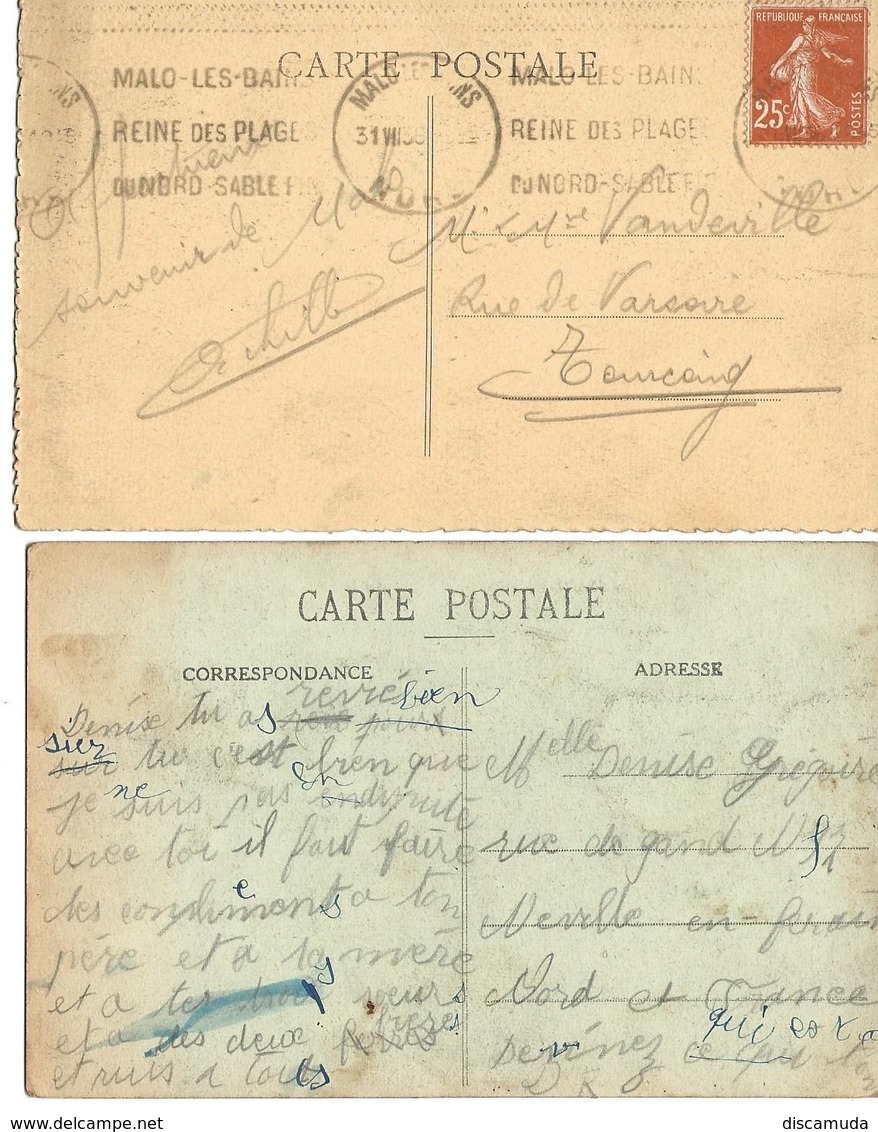 CARTE POSTALE
REPUBLIQUE FRANÇAISE
25c
POSTES
MALO-LES-BAINS
REINE DES PLAGES
DU NORD-SABLE FIN
MALO-LES-BAINS
REINE DES PLAGES
DU NORD-SABLE FIN
31 VII 35
souvenir de Malo
Mr & Mme Vandeville
Rue de Varsovie
Tourcoing
CARTE POSTALE
CORRESPONDANCE
ADRESSE
Denise tu as bien
sur tu c'est bien que
ne
je suis pas
avec toi il faut faire
des condiments a ton
père et a ta mère
et a tes trois soeurs
et a des deux frères
et puis a tous
Melle Denise Grégoire
rue de gand N
Neuville en ferain
Nord et France
Devinez ce qui
qui
discamuda